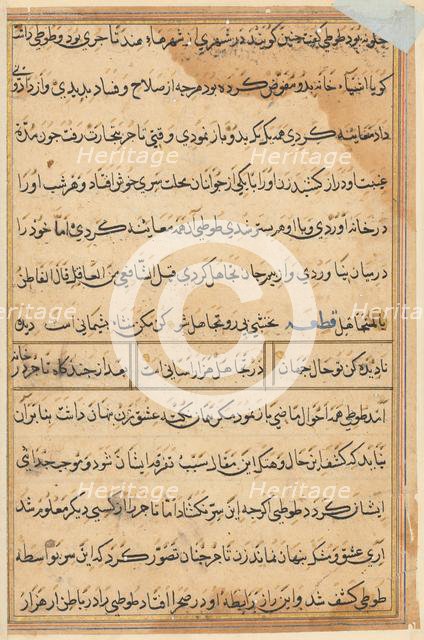 چگونه بود طوطی گفت چنین گویند در شهری از شهرهاء هند تاجری بود و طوطی داشت
گویا اشیاء خانه بدو مفوض کرده بود هرچه از صلاح و فساد بدیدی و از داد و
داد معاینه کردی همه یک بیک بدو باز نمودی وقتی تاجر بتجارت رفت چون مدت
غیبت او دراز کشید زن او را با یکی از جوانان محلت سری خوش افتاد و هر شب او را
در خانه آوردی و با او هم بستر شدی طوطی آن همه معاینه کردی اما خود را
در میان نیاوردی و از بیم جان تجاهل کردی قیل للشافعی من العاقل قال الفاطن
المتجاهل قطعه نخشبی رو تجاهلی شو کن مکن شاء پشیمانی است دیده
نادیده کن تو حال جهان در تجاهل هزار آسانی است بعد از چندگاه تاجر در خانه
آمد طوطی همه احوال ماضی باز نمود مگر نهان نکند عشق زن نهان داشت بنا بر آن
نباید که کشف این حال و هتک این مقال سبب تفرقه ایشان شود و موجب جدائی
ایشان گردد طوطی اگرچه این سر نگشاد اما تاجر را از کسی دیگر معلوم شد
آری عشق و مشک پنهان نماند زن تاجر چنان تصور کرد که این سر بواسطه
طوطی کشف شد و این راز رابطه او در صحرا افتاد طوطی را در باطن از هزار
Heritage